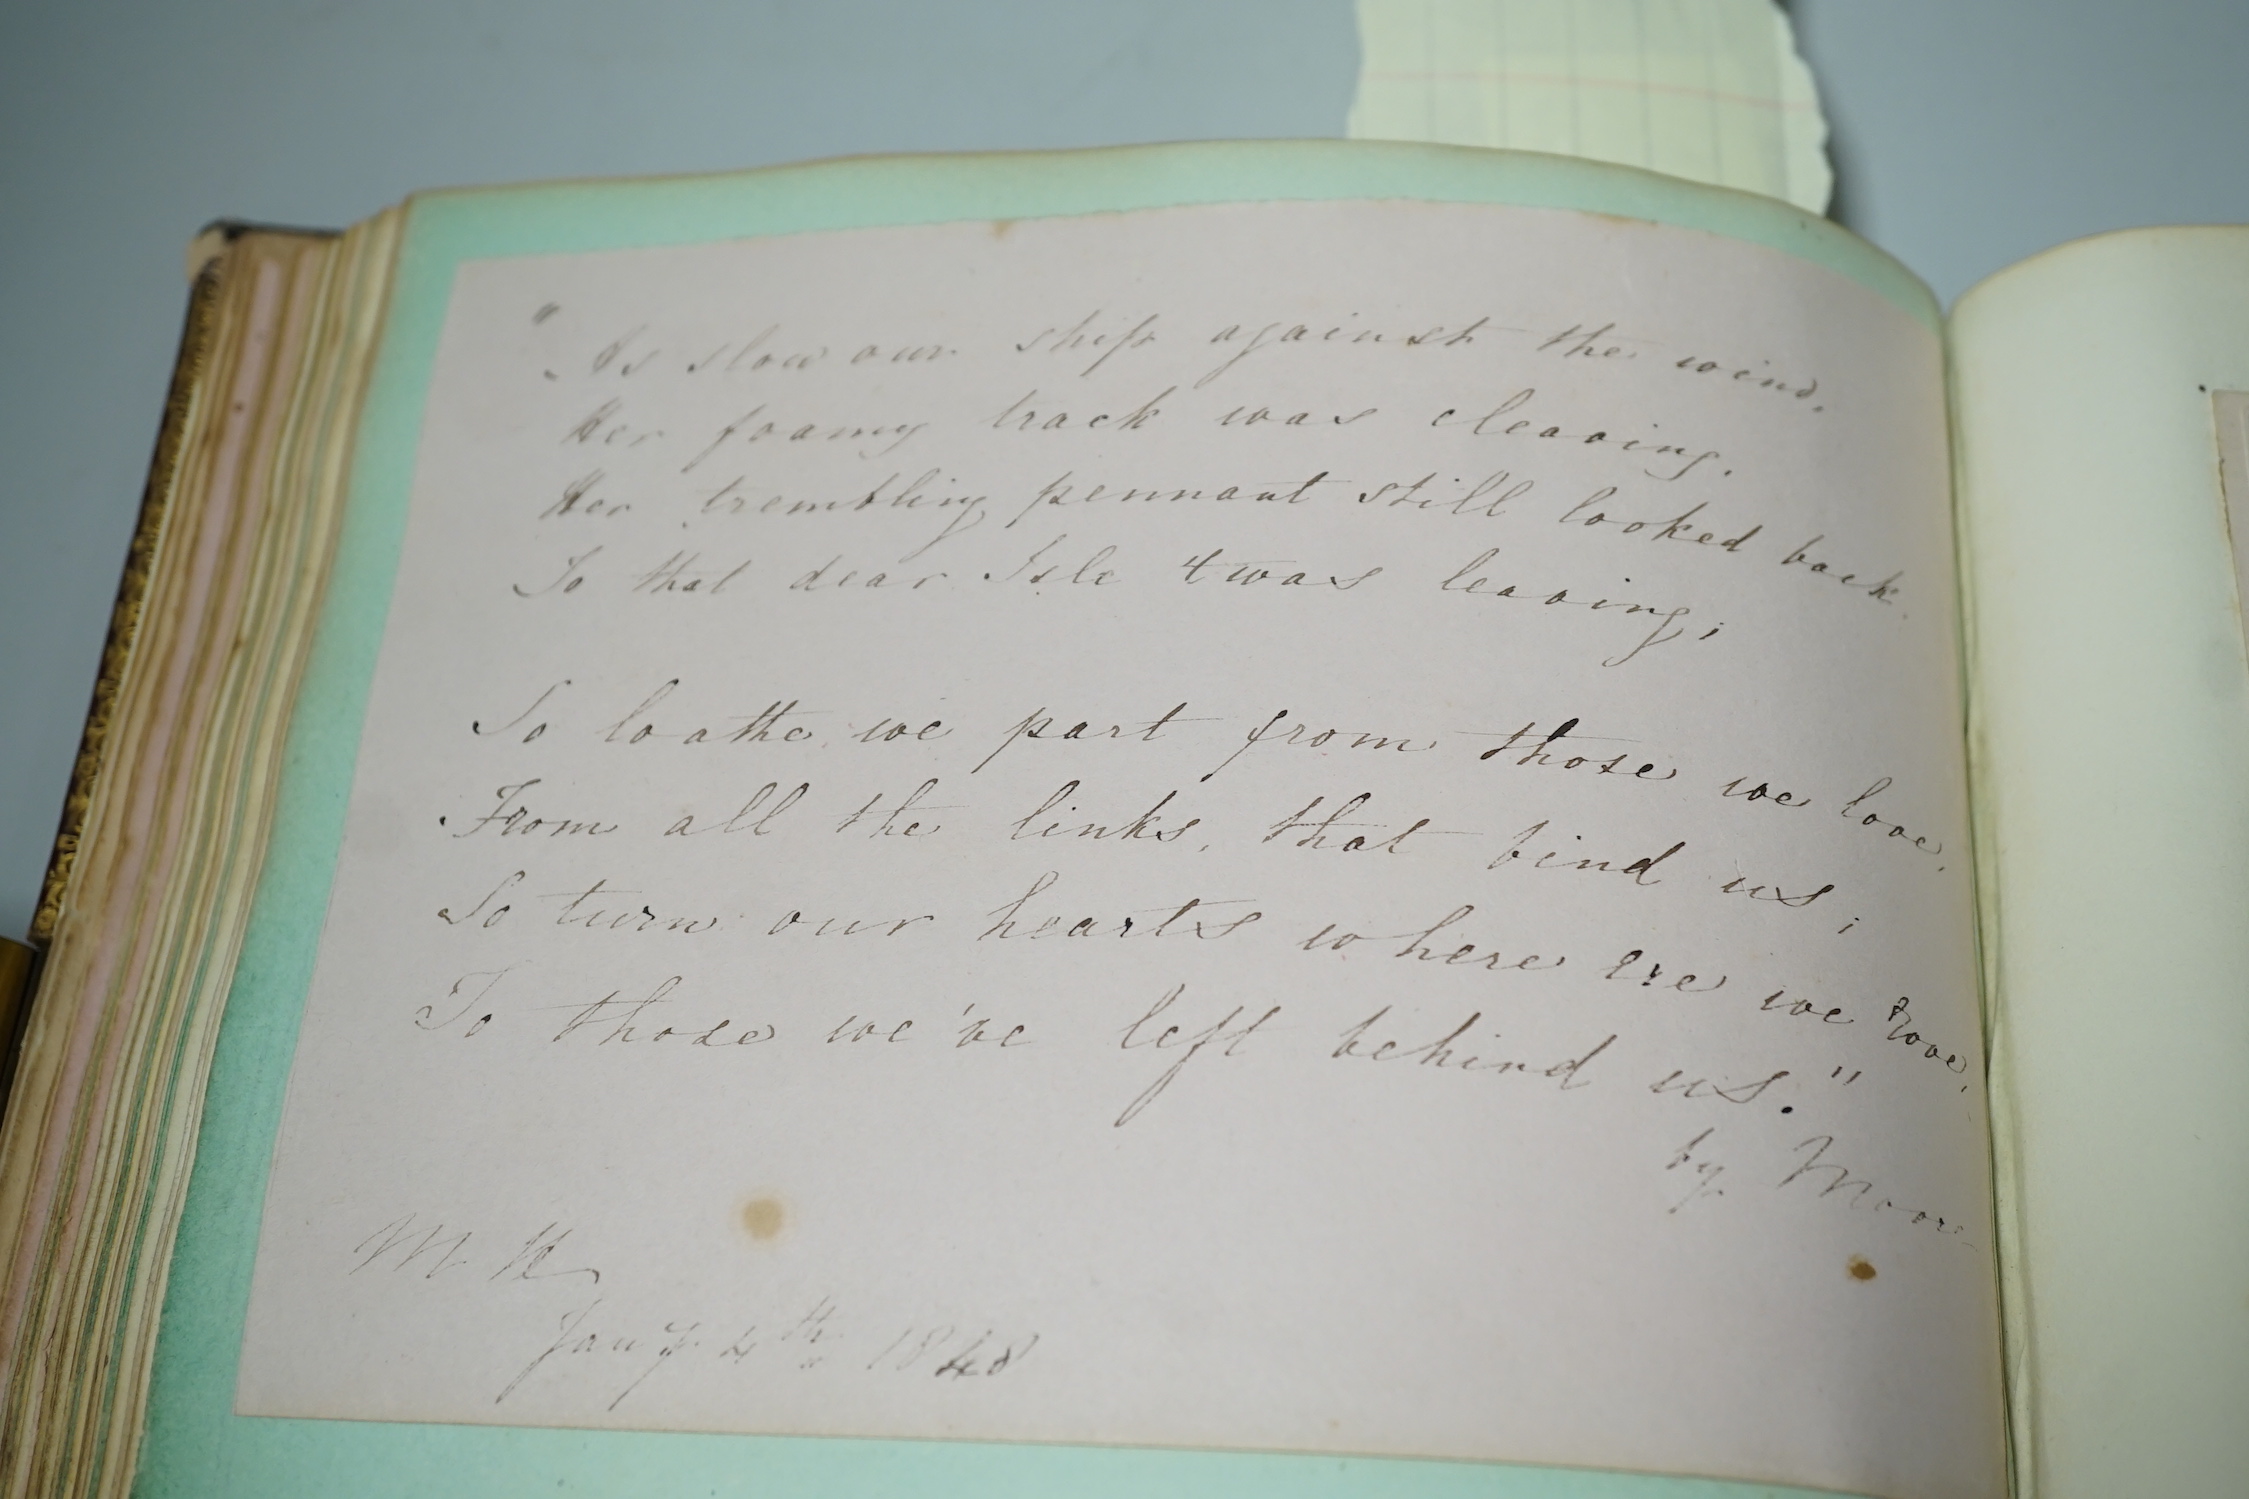 "As slow our ship against the wind,
Her foamy track was cleaving.
Her trembling pennant still looked back
To that dear Isle 'twas leaving;
So loathe we part from those we love,
From all the links, that bind us;
So turn our hearts where ere we rove,
To those we've left behind us."
by Moore
M H
Jany. 4th 1848